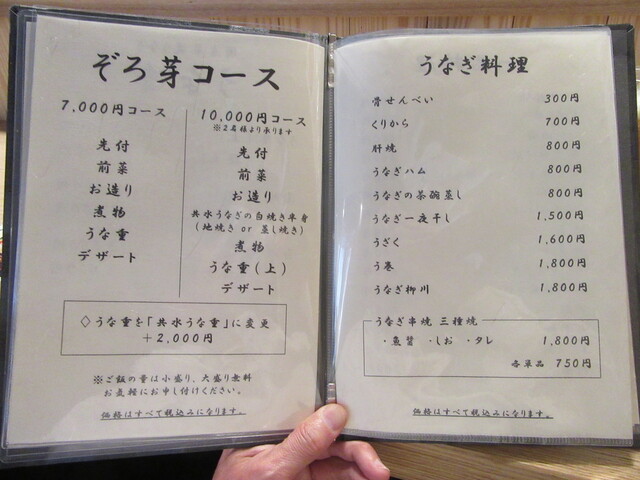 ぞろ芽コース
7,000円コース
先付
前菜
お造り
煮物
うな重
デザート
10,000円コース
※2名様より承ります
先付
前菜
お造り
共水うなぎの白焼き半身
(地焼き or 蒸し焼き)
煮物
うな重(上)
デザート
◇うな重を「共水うな重」に変更
+2,000円
※ご飯の量は小盛り、大盛り無料
お気軽にお申し付けください。
価格はすべて税込みになります。
うなぎ料理
骨せんべい 300円
くりから 700円
肝焼 800円
うなぎハム 800円
うなぎの茶碗蒸し 800円
うなぎ一夜干し 1,500円
うざく 1,600円
う巻 1,800円
うなぎ柳川 1,800円
うなぎ串焼 三種焼
・魚醤 ・しお ・タレ 1,800円
各単品 750円
価格はすべて税込みになります。